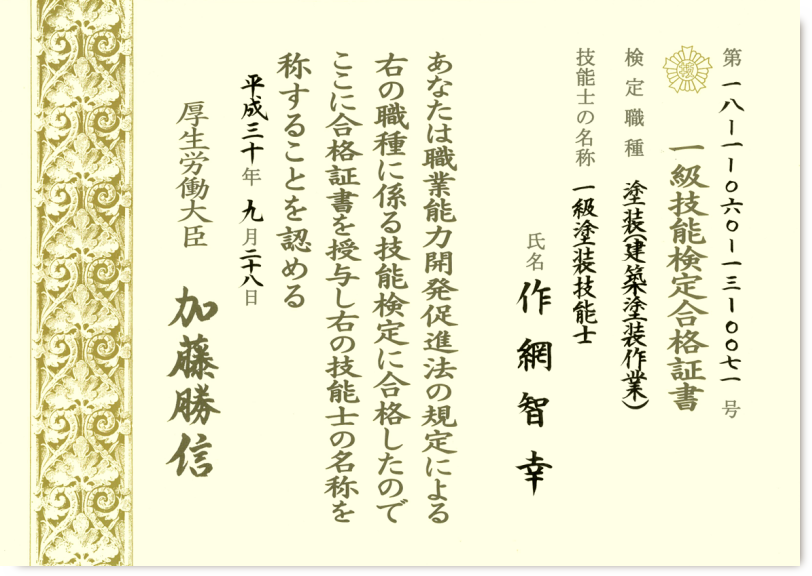 第一八ー一ー〇六〇ー一三ー〇〇七一号
一級技能検定合格証書
検定職種 塗装(建築塗装作業)
技能士の名称 一級塗装技能士
氏名 作網智幸
あなたは職業能力開発促進法の規定による
右の職種に係る技能検定に合格したので
ここに合格証書を授与し右の技能士の名称を
称することを認める
平成三十年九月二十八日
厚生労働大臣 加藤勝信